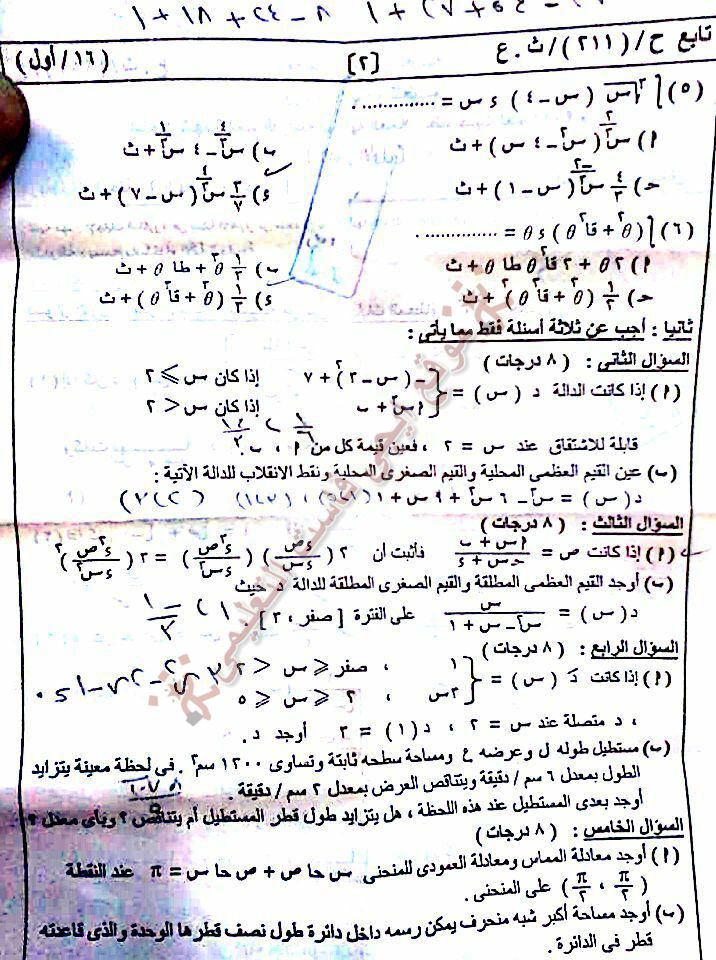 تابع ح/(٢١١)/ث.ع [٢] (١٦/أول)
(٥) ∫ ∛س (س - ٤) ءس = ..............
(أ) س^(٢/٣) (س٢ - ٤ س) + ث (ب) س^(٤/٣) - ٤ س^(١/٣) + ث
(ء) ٣/٧ س^(٤/٣) (س - ٧) + ث
(٦) ∫ (θ٢ + قا٢ θ) ءθ = ..............
(أ) ٢θ + ٢ قا٢ θ طا θ + ث (ب) ١/٣ θ٣ + طا θ + ث
(حـ) ١/٢ (θ٢ + قا٢ θ)٢ + ث (ء) ١/٣ (θ٣ + قا٣ θ) + ث
ثانيا : أجب عن ثلاثة أسئلة فقط مما يأتى :
السؤال الثانى : (٨ درجات)
(أ) إذا كانت الدالة د (س) = { -(س - ٢)٢ + ٧ إذا كان س ⩽ ٢
أ س٢ + ب إذا كان س > ٢
قابلة للاشتقاق عند س = ٢ ، فعين قيمة كل من أ ، ب .
(ب) عين القيم العظمى المحلية والقيم الصغرى المحلية ونقط الانقلاب للدالة الآتية :
د (س) = س٣ - ٦ س٢ + ٩ س + ١
السؤال الثالث : (٨ درجات)
(أ) إذا كانت ص = (أ س + ب)/(حـ س + ء) فأثبت أن ٢ (ءص/ءس) (ء٣ص/ءس٣) = ٣ (ء٢ص/ءس٢)٢
(ب) أوجد القيم العظمى المطلقة والقيم الصغرى المطلقة للدالة د حيث
د (س) = س/(س٢ - س + ١) على الفترة [صفر ، ٣] .
السؤال الرابع : (٨ درجات)
(أ) إذا كانت دَ (س) = { ١ ، صفر ⩽ س < ٢
٣س ، ٢ ⩽ س ⩽ ٥
، د متصلة عند س = ٢ ، د(١) = ٣ أوجد د .
(ب) مستطيل طوله ل وعرضه ع ومساحة سطحه ثابتة وتساوى ١٢٠٠ سم٢ . فى لحظة معينة يتزايد
الطول بمعدل ٦ سم / دقيقة ويتناقص العرض بمعدل ٢ سم / دقيقة .
أوجد بعدى المستطيل عند هذه اللحظة ، هل يتزايد طول قطر المستطيل أم يتناقص ؟ وبأى معدل ؟
السؤال الخامس : (٨ درجات)
(أ) أوجد معادلة المماس ومعادلة العمودى للمنحنى س حا ص + ص حا س = π عند النقطة
(π/٢ ، π/٢) على المنحنى .
(ب) أوجد مساحة أكبر شبه منحرف يمكن رسمه داخل دائرة طول نصف قطرها الوحدة والذى قاعدته
قطر فى الدائرة .